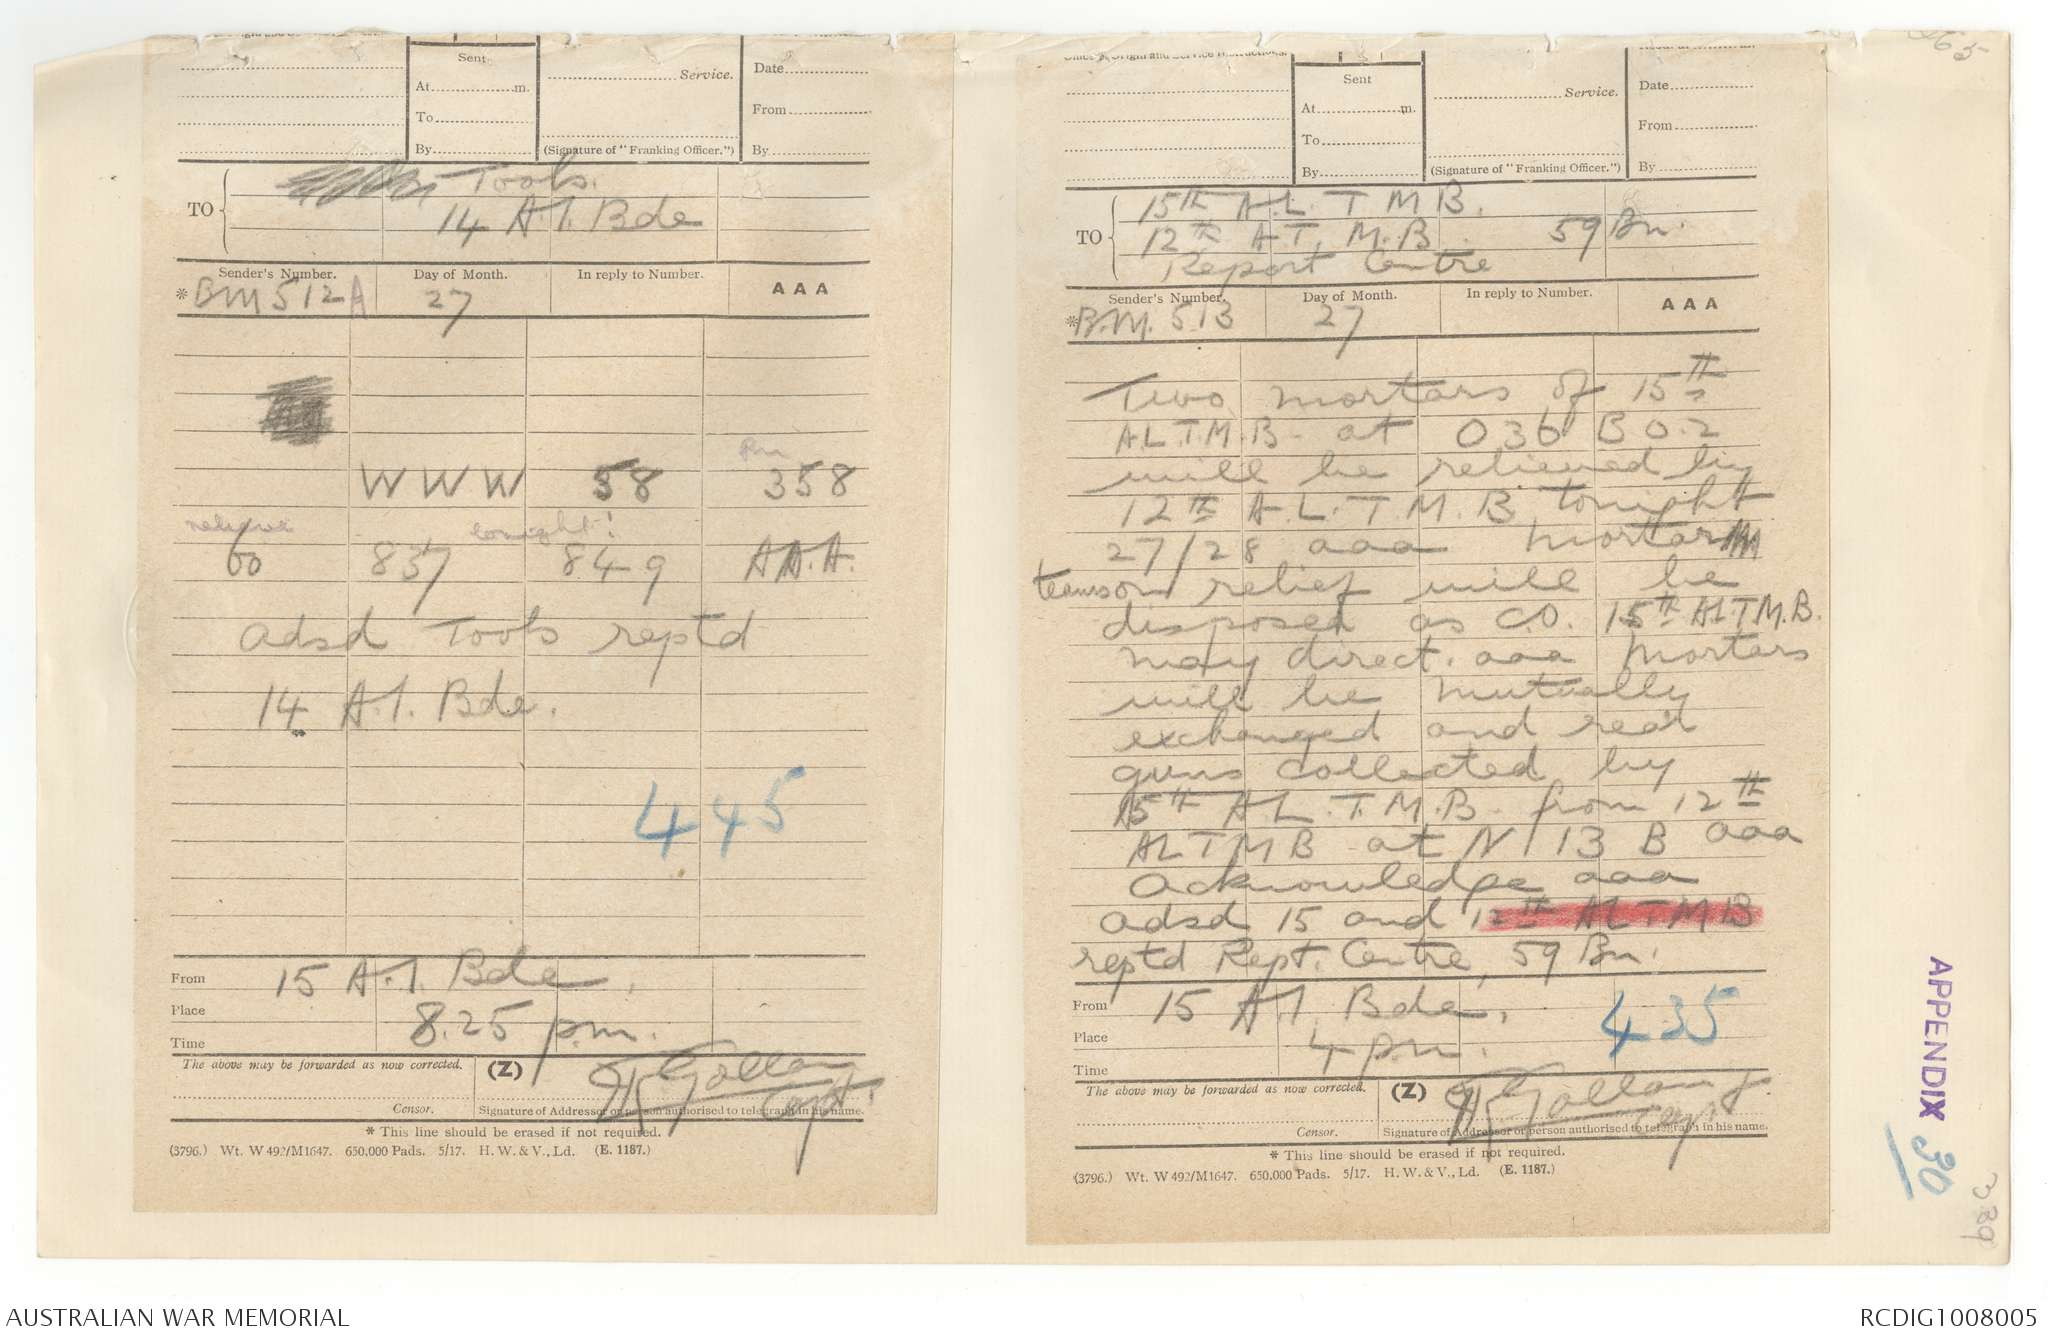 Sent
At m.
To
By
Service.
(Signature of "Franking Officer.")
Date
From
By
TO
Tools.
14 A.I. Bde
Sender's Number. Day of Month. In reply to Number. AAA
* BM 512A 27
Bn
WWW 58 358
relieve tonight!
60 837 849 AAA.
adsd Tools reptd
14 A.I. Bde.
445
From 15 A.I. Bde.
Place
8.25 p.m.
Time
The above may be forwarded as now corrected. (Z)
Capt.
Censor. Signature of Addressor or person authorised to telegraph in his name.
* This line should be erased if not required.
(3796.) Wt. W 492/M1647. 650,000 Pads. 5/17. H. W. & V., Ld. (E. 1187.)
Office of Origin and Service Instructions.
Sent
At m.
To
By
Service.
(Signature of "Franking Officer.")
Date
From
By
TO
15th A.L.T.M.B.
12th A.T.M.B. 59 Bn.
Report Centre
Sender's Number. Day of Month. In reply to Number. AAA
* B.M. 513 27
Two mortars of 15th
A.L.T.M.B. at O36 B 0.2
will be relieved by
12th A.L.T.M.B. tonight
27/28 aaa mortar
teams on relief will be
disposed as C.O. 15th ALTM.B.
may direct. aaa Mortars
will be mutually
exchanged and rear
guns collected by
15th A.L.T.M.B. from 12th
ALTMB at N 13 B aaa
acknowledge aaa
adsd 15 and 12th ALTMB
reptd Rept. Centre, 59 Bn.
From 15 A.I. Bde.
435
Place
4 p.m.
Time
The above may be forwarded as now corrected. (Z)
Capt
Censor. Signature of Addressor or person authorised to telegraph in his name.
* This line should be erased if not required.
(3796.) Wt. W 492/M1647. 650,000 Pads. 5/17. H. W. & V., Ld. (E. 1187.)
APPENDIX 30
339
AUSTRALIAN WAR MEMORIAL
RCDIG1008005